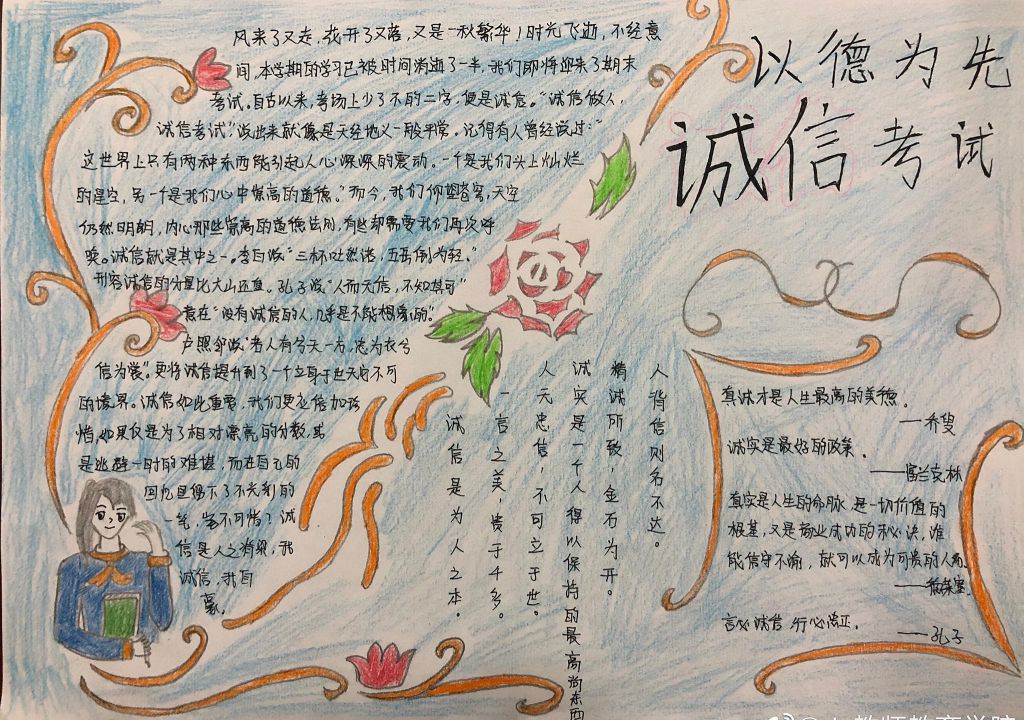 以德为先
诚信考试
风来了又走，花开了又落，又是一秋繁华！时光飞逝，不经意
间，本学期的学习已被时间消逝了一半，我们即将迎来了期末
考试。自古以来，考场上少了不的二字，便是诚信。“诚信做人，
诚信考试”，说出来就像是天经地义一般平常。记得有人曾经说过：“
这世界上只有两种东西能引起人心深深的震动。一个是我们头上灿烂
的星空，另一个是我们心中崇高的道德。”而今，我们仰望苍穹，天空
仍然明朗，内心那些崇高的道德法则，有些却需要我们再次呼
唤。诚信就是其中之一。李白说“三杯吐然诺，五岳倒为轻，”
形容诚信的分量比大山还重。孔子说“人而无信，不知其可”
意在“没有诚信的人，几乎是不能想象的”。
卢照邻说“若人有兮天一方，忠为衣兮
信为裳”。更将诚信提升到了一个立身于世无它不可
的境界。诚信如此重要，我们更应倍加珍
惜，如果仅是为了相对漂亮的分数，或
是逃避一时的难堪，而在自己的
回忆里留下了不光彩的
一笔，岂不可惜？诚
信是人之脊梁，我
诚信，我自
豪。
人背信则名不达。
精诚所致，金石为开。
诚实是一个人得以保持的最高尚东西
人无忠信，不可立于世。
一言之美，贵于千金。
诚信是为人之本。
真诚才是人生最高的美德。
——乔叟
诚实是最好的政策。
——富兰克林
真实是人生的命脉，是一切价值的
根基，又是商业成功的秘诀，谁
能信守不渝，就可以成为可贵的人
言必诚信 行必忠正。
——孔子